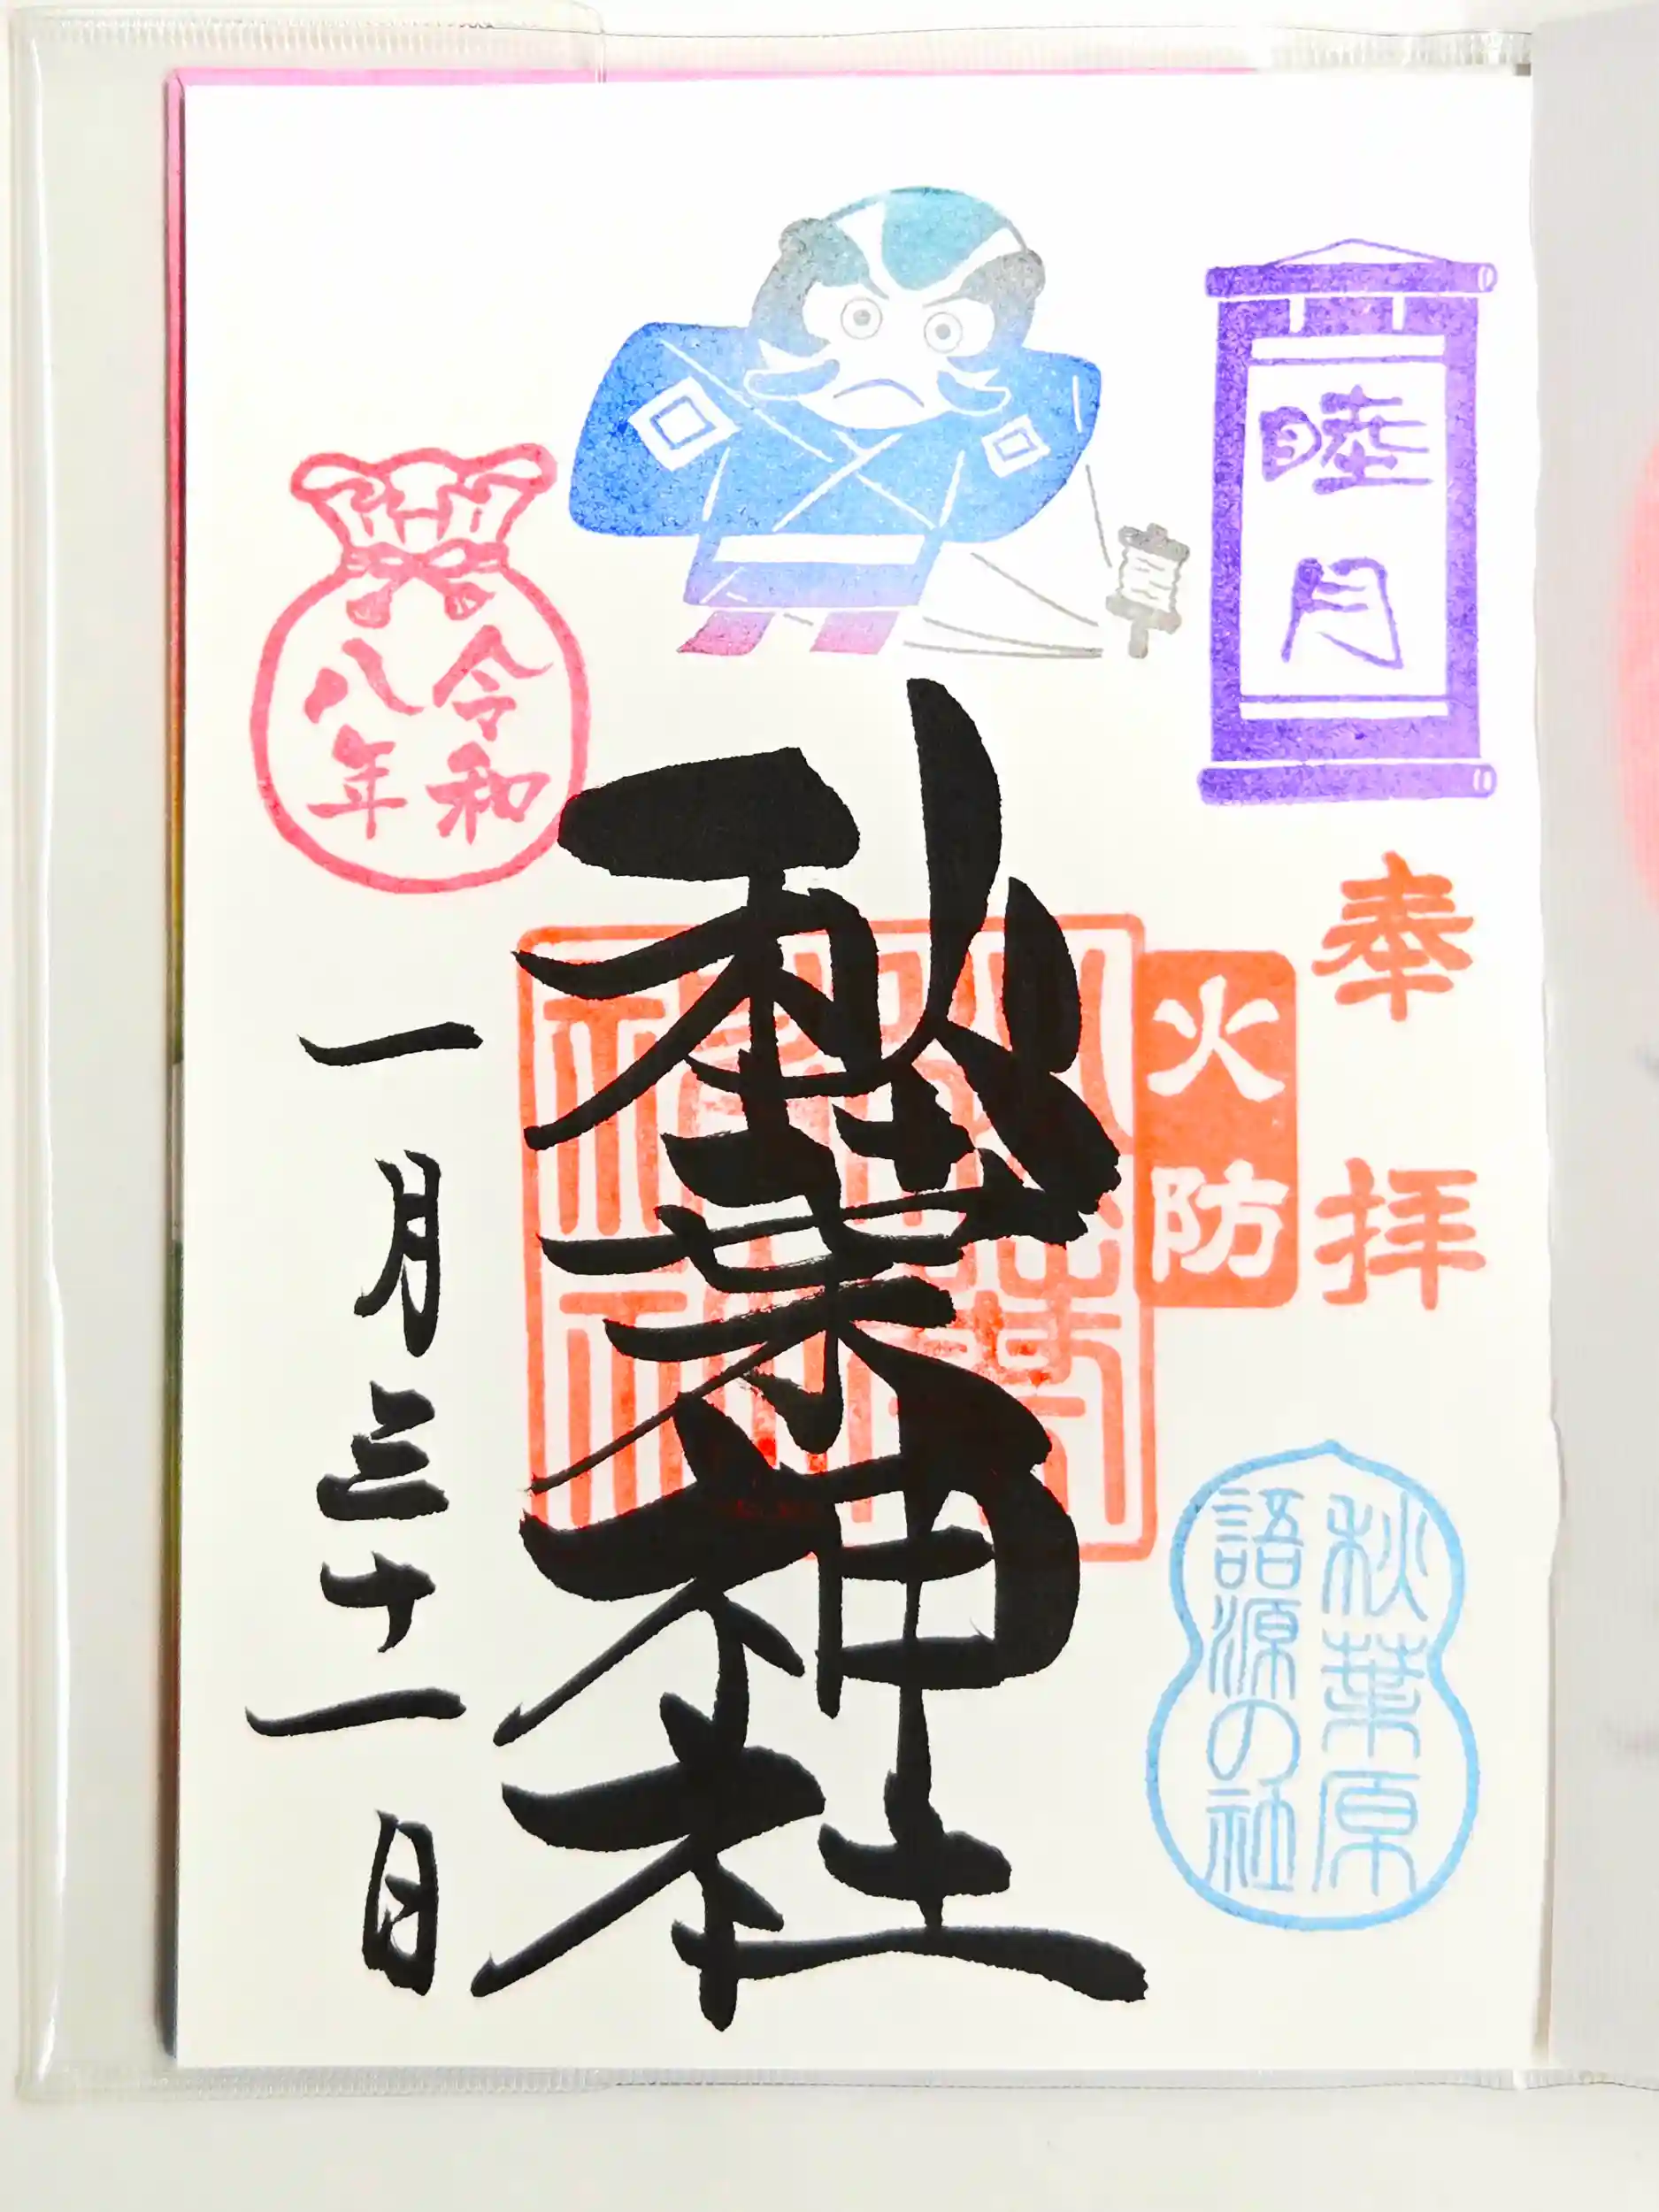 睦月
奉拝
火防
秋葉原
語源の社
秋葉神社
秋葉神社
令和
八年
一月三十一日